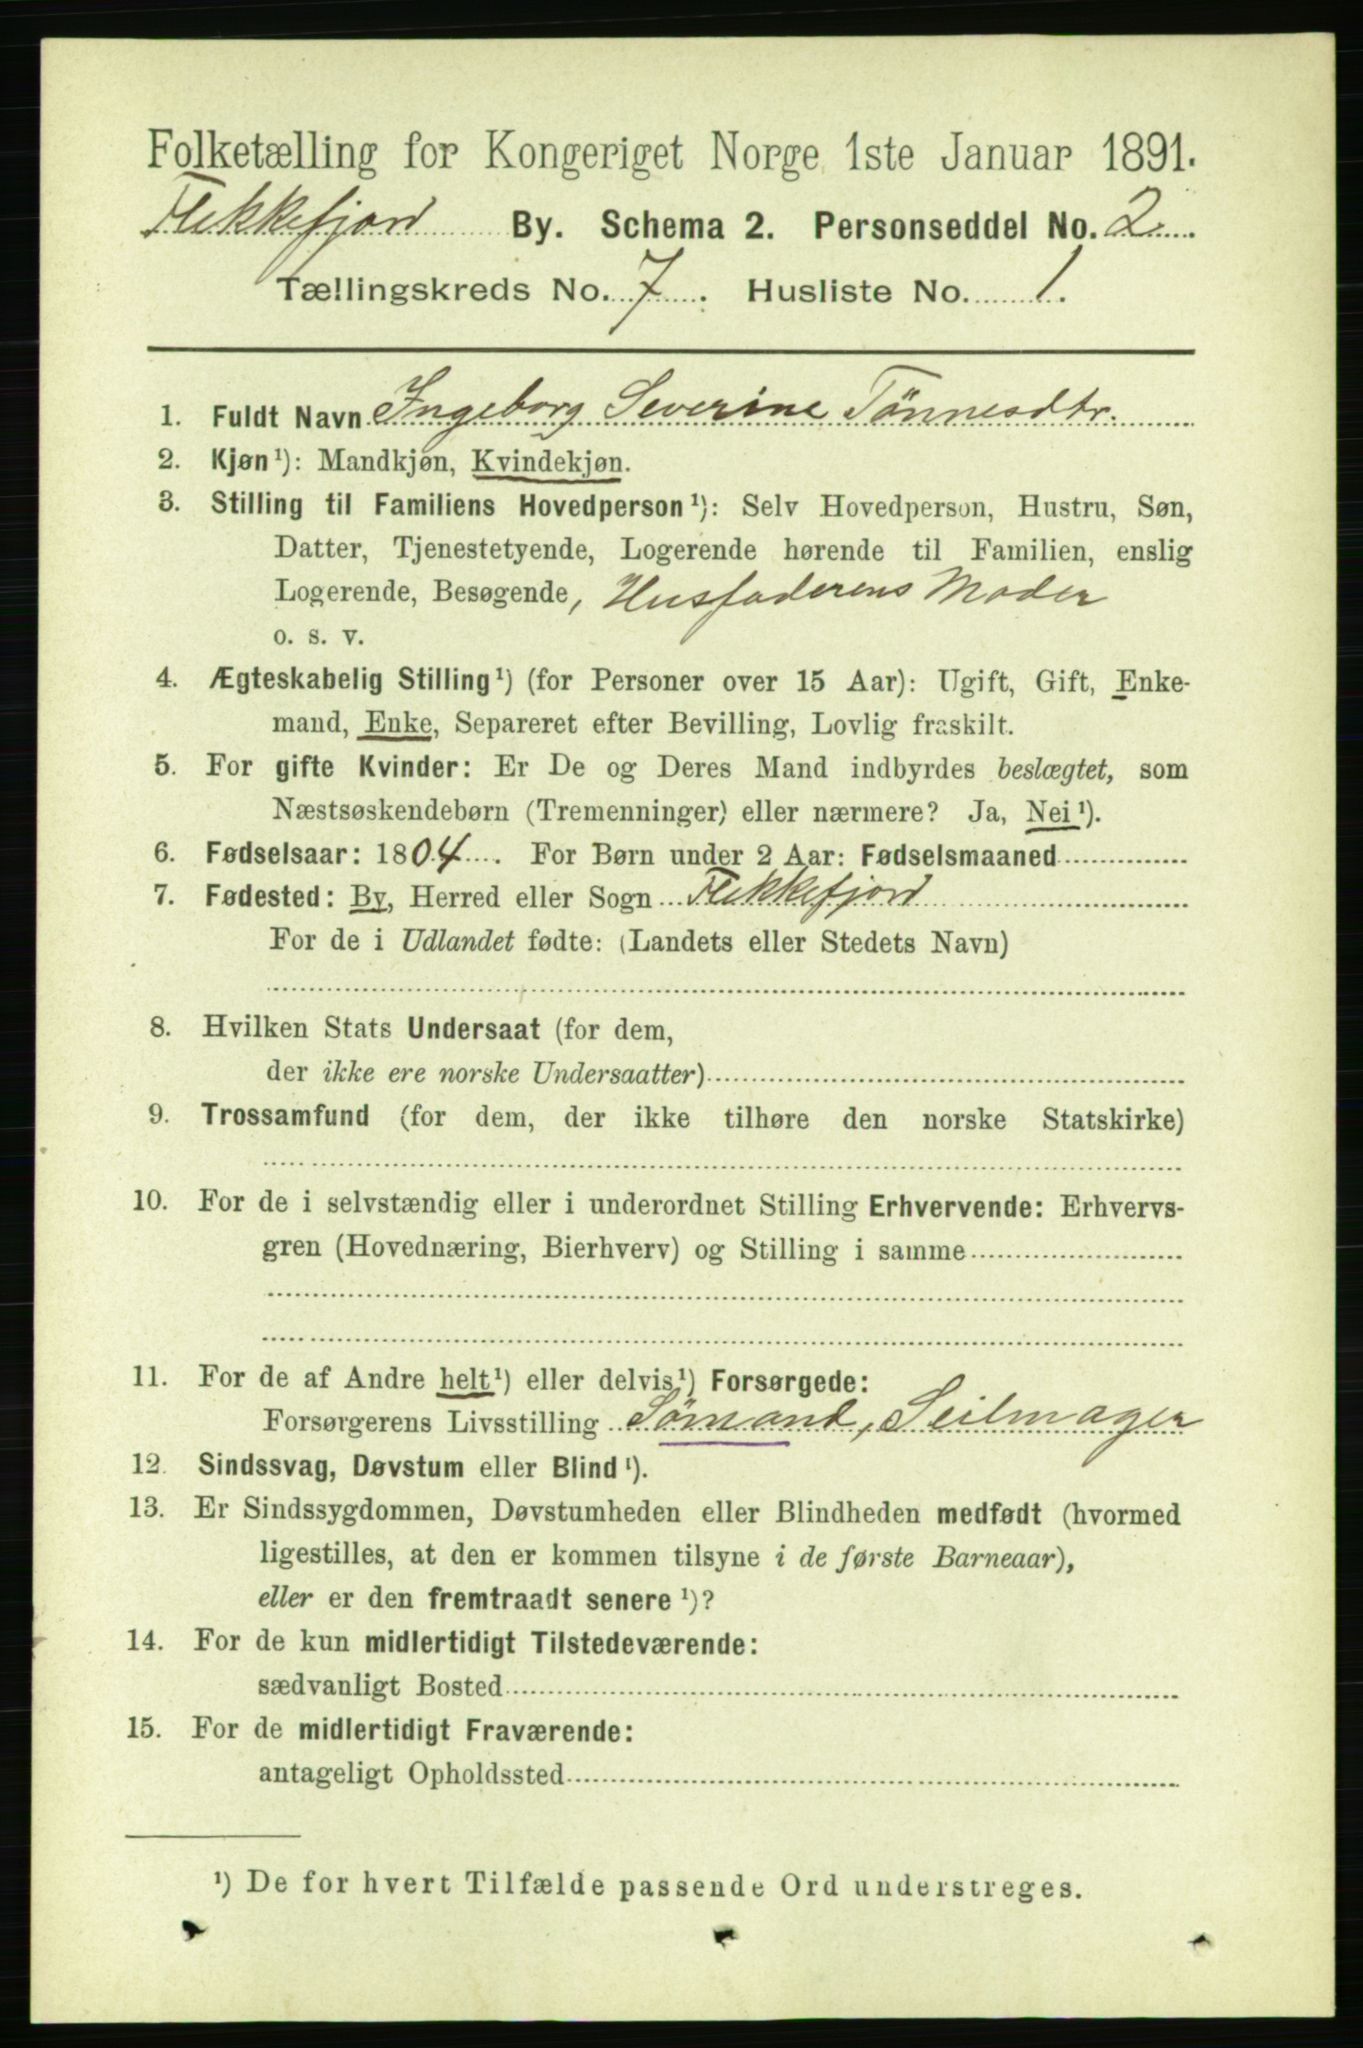 Folketælling for Kongeriget Norge 1ste Januar 1891.
Flekkefjord By. Schema 2. Personseddel No. 2
Tællingskreds No. 7. Husliste No. 1.
1. Fuldt Navn Ingeborg Severine Tönnesdtr.
2. Kjøn¹): Mandkjøn, Kvindekjøn.
3. Stilling til Familiens Hovedperson¹): Selv Hovedperson, Hustru, Søn,
Datter, Tjenestetyende, Logerende hørende til Familien, enslig
Logerende, Besøgende, Husfaderens Moder
o. s. v.
4. Ægteskabelig Stilling¹) (for Personer over 15 Aar): Ugift, Gift, Enke-
mand, Enke, Separeret efter Bevilling, Lovlig fraskilt.
5. For gifte Kvinder: Er De og Deres Mand indbyrdes beslægtet, som
Næstsøskendebørn (Tremenninger) eller nærmere? Ja, Nei¹).
6. Fødselsaar: 1804. For Børn under 2 Aar: Fødselsmaaned
7. Fødested: By, Herred eller Sogn Flekkefjord
For de i Udlandet fødte: (Landets eller Stedets Navn)
8. Hvilken Stats Undersaat (for dem,
der ikke ere norske Undersaatter)
9. Trossamfund (for dem, der ikke tilhøre den norske Statskirke)
10. For de i selvstændig eller i underordnet Stilling Erhvervende: Erhvervs-
gren (Hovednæring, Bierhverv) og Stilling i samme
11. For de af Andre helt¹) eller delvis¹) Forsørgede:
Forsørgerens Livsstilling Sömand, Seilmager
12. Sindssvag, Døvstum eller Blind¹).
13. Er Sindssygdommen, Døvstumheden eller Blindheden medfødt (hvormed
ligestilles, at den er kommen tilsyne i de første Barneaar),
eller er den fremtraadt senere¹)?
14. For de kun midlertidigt Tilstedeværende:
sædvanligt Bosted
15. For de midlertidigt Fraværende:
antageligt Opholdssted
¹) De for hvert Tilfælde passende Ord understreges.